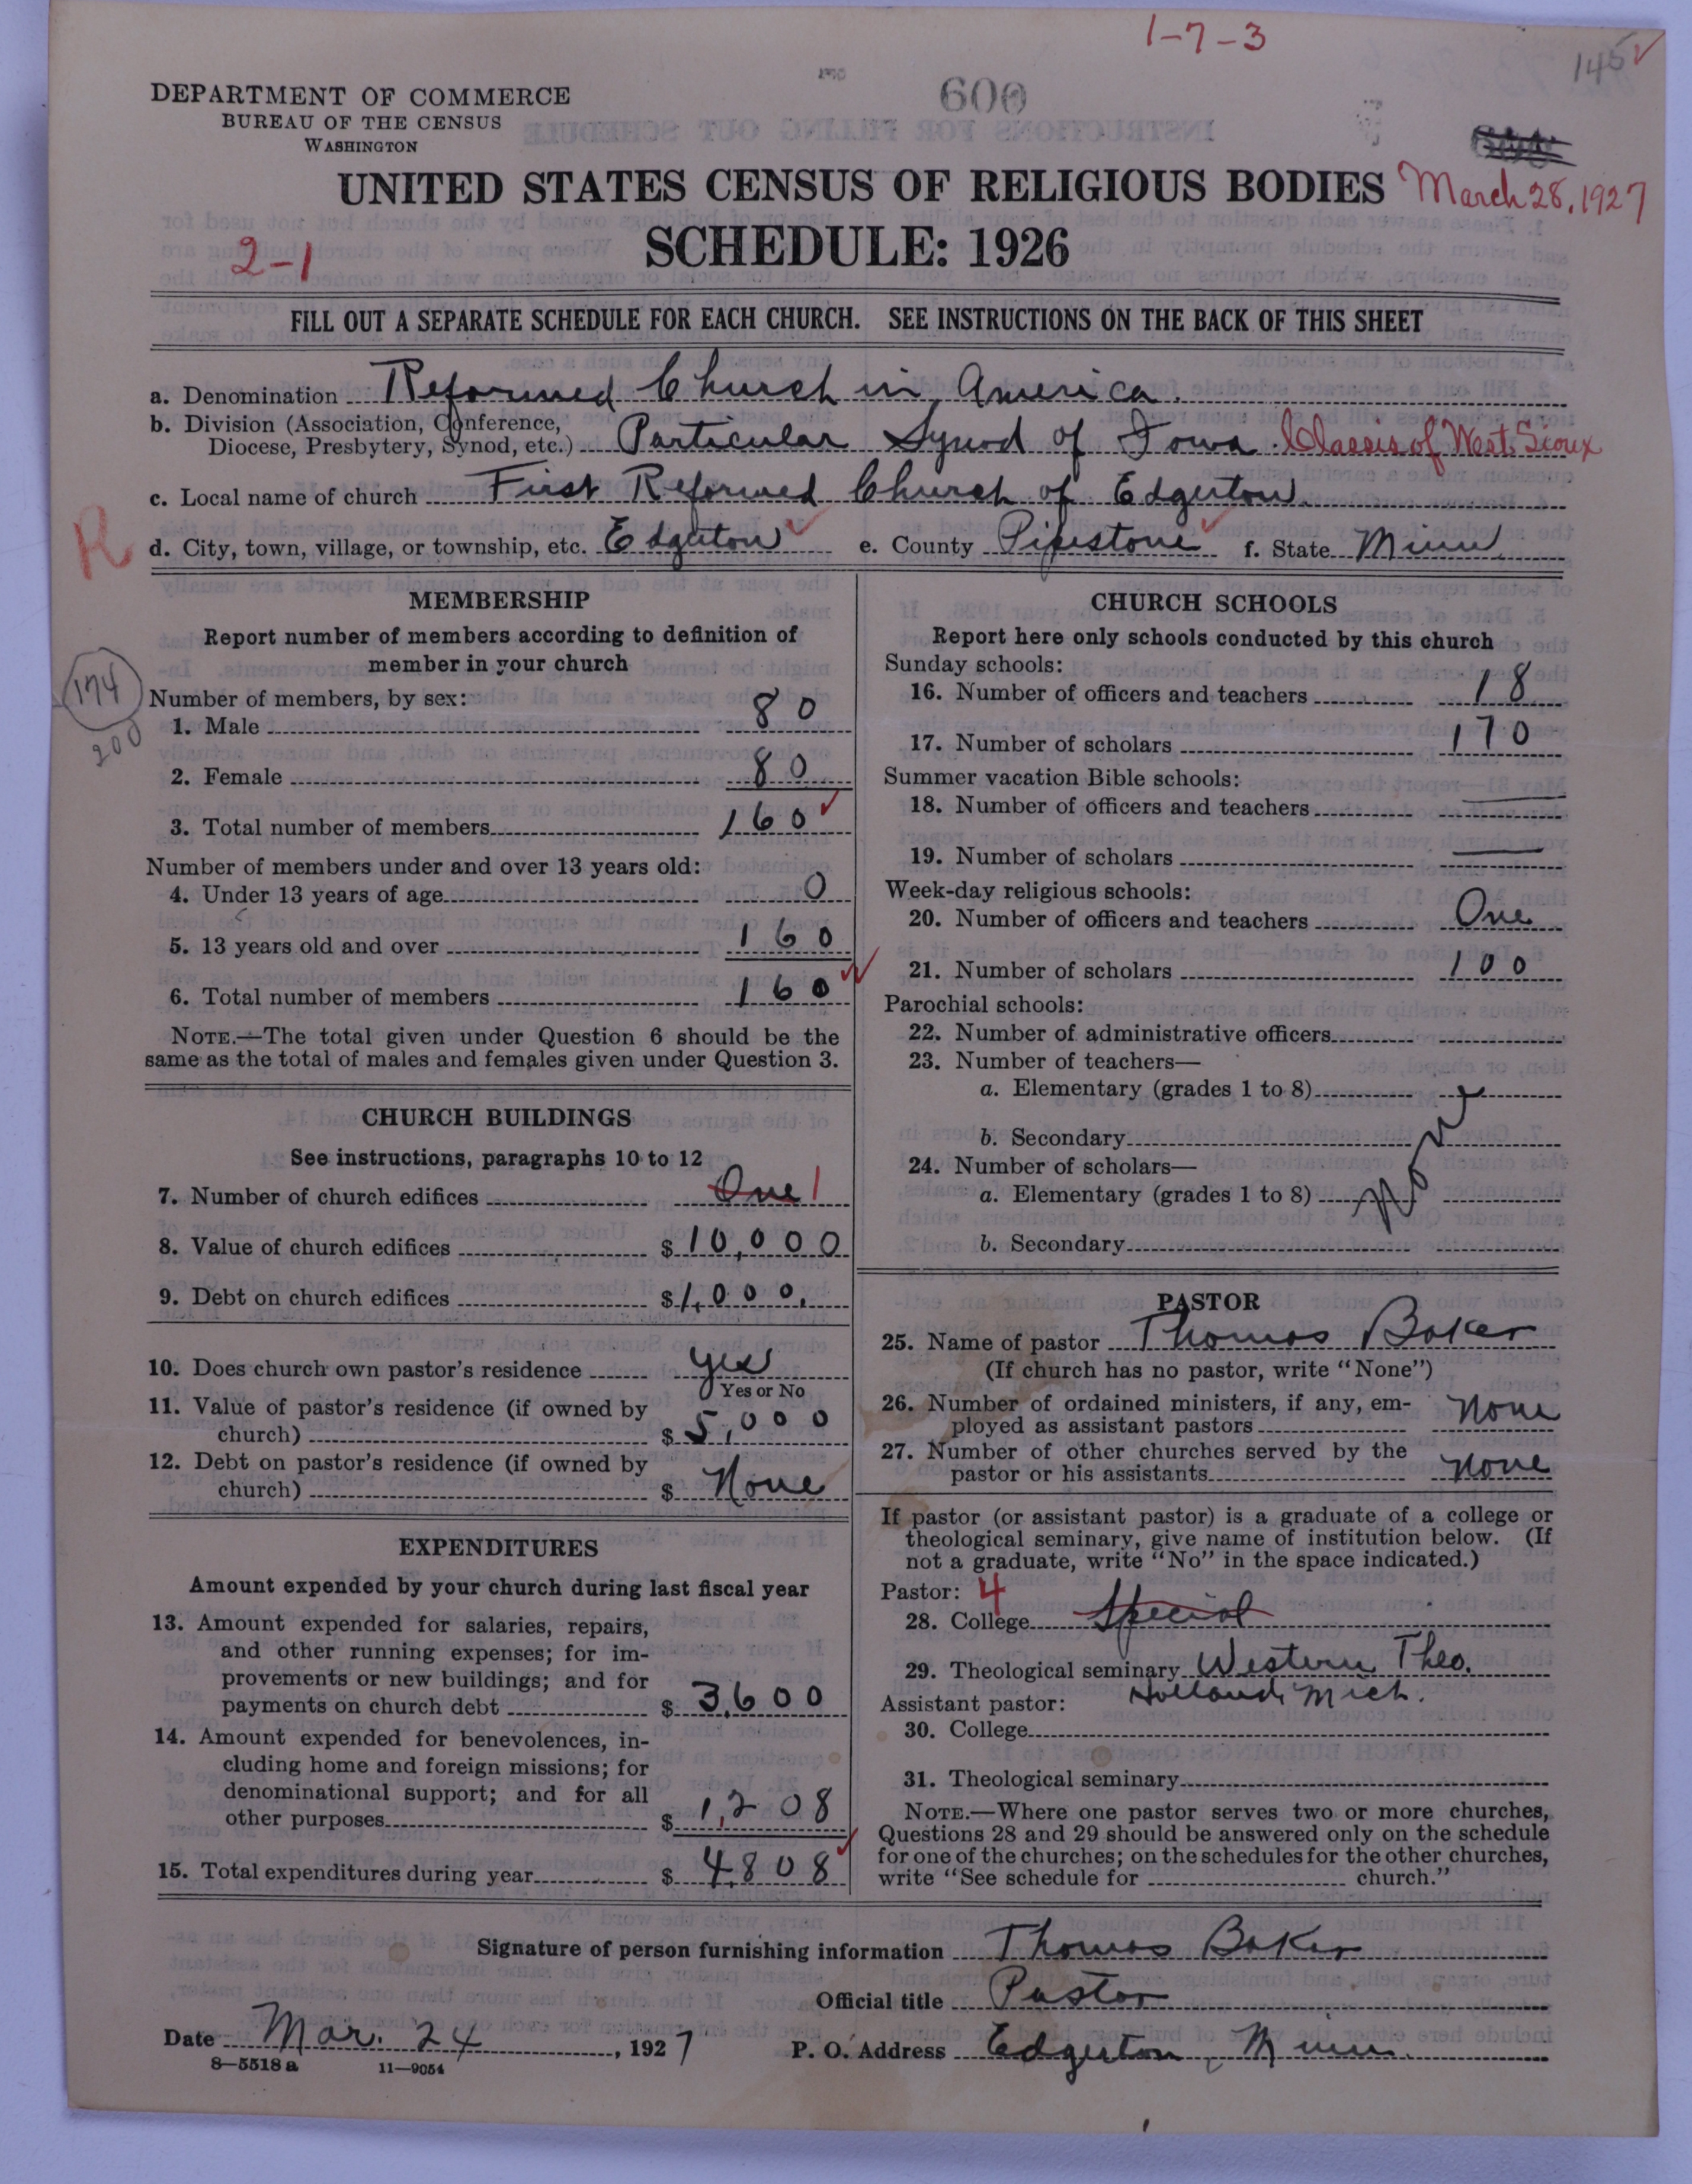 1-7-3
145
DEPARTMENT OF COMMERCE
BUREAU OF THE CENSUS
WASHINGTON
600
UNITED STATES CENSUS OF RELIGIOUS BODIES
March 28, 1927
SCHEDULE: 1926
2-1
FILL OUT A SEPARATE SCHEDULE FOR EACH CHURCH. SEE INSTRUCTIONS ON THE BACK OF THIS SHEET
a. Denomination Reformed Church in America.
b. Division (Association, Conference,
Diocese, Presbytery, Synod, etc.) Particular Synod of Iowa Classis of West Sioux
c. Local name of church First Reformed Church of Edgerton
R
d. City, town, village, or township, etc. Edgerton e. County Pipestone f. State Minn
MEMBERSHIP
Report number of members according to definition of
member in your church
174
200
Number of members, by sex:
1. Male 80
2. Female 80
3. Total number of members 160
Number of members under and over 13 years old:
4. Under 13 years of age 0
5. 13 years old and over 160
6. Total number of members 160
NOTE.—The total given under Question 6 should be the
same as the total of males and females given under Question 3.
CHURCH BUILDINGS
See instructions, paragraphs 10 to 12
7. Number of church edifices One 1
8. Value of church edifices $ 10,000
9. Debt on church edifices $ 1,000.
10. Does church own pastor's residence yes
Yes or No
11. Value of pastor's residence (if owned by
church) $ 5,000
12. Debt on pastor's residence (if owned by
church) $ None
EXPENDITURES
Amount expended by your church during last fiscal year
13. Amount expended for salaries, repairs,
and other running expenses; for im-
provements or new buildings; and for
payments on church debt $ 3,600
14. Amount expended for benevolences, in-
cluding home and foreign missions; for
denominational support; and for all
other purposes $ 1,208
15. Total expenditures during year $ 4808
CHURCH SCHOOLS
Report here only schools conducted by this church
Sunday schools:
16. Number of officers and teachers 18
17. Number of scholars 170
Summer vacation Bible schools:
18. Number of officers and teachers —
19. Number of scholars —
Week-day religious schools:
20. Number of officers and teachers One
21. Number of scholars 100
Parochial schools:
22. Number of administrative officers
23. Number of teachers—
a. Elementary (grades 1 to 8)
b. Secondary
24. Number of scholars—
a. Elementary (grades 1 to 8)
b. Secondary
PASTOR
25. Name of pastor Thomas Baker
(If church has no pastor, write "None")
26. Number of ordained ministers, if any, em-
ployed as assistant pastors None
27. Number of other churches served by the
pastor or his assistants None
If pastor (or assistant pastor) is a graduate of a college or
theological seminary, give name of institution below. (If
not a graduate, write "No" in the space indicated.)
Pastor: 4
28. College Special
29. Theological seminary Western Theo.
Holland Mich.
Assistant pastor:
30. College
31. Theological seminary
NOTE.—Where one pastor serves two or more churches,
Questions 28 and 29 should be answered only on the schedule
for one of the churches; on the schedules for the other churches,
write "See schedule for church."
Signature of person furnishing information Thomas Baker
Official title Pastor
Date Mar. 24, 1927
P. O. Address Edgerton, Minn.
8—5518 a 11—9054